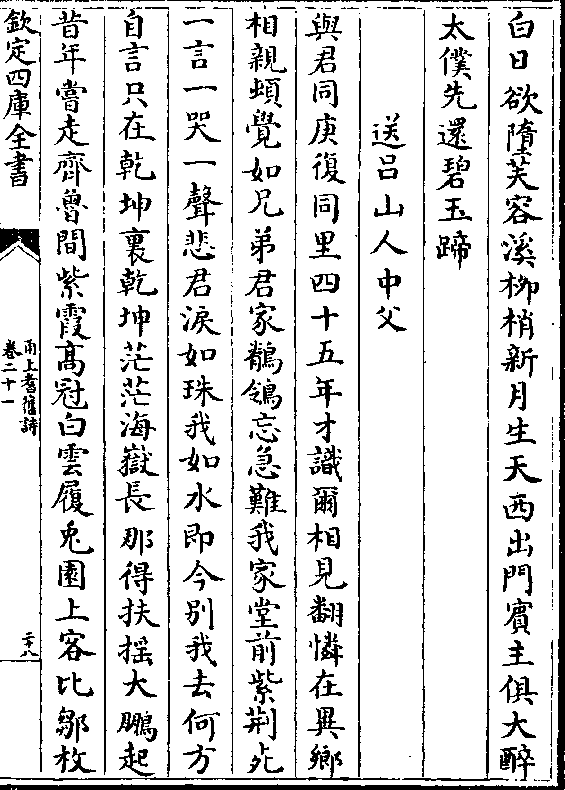 白日欲隋芙容溪柳梢新月生天西出門賓主俱大醉
太僕先還碧玉蹄
送呂山人中父
與君同庚復同里四十五年才識爾相見翻憐在異鄉
相親頓覺如兄弟君家鶺鴒忘急難我家堂前紫荆死
一言一哭一聲悲君淚如珠我如水即今别我去何方
自言只在乾坤裏乾坤茫茫海嶽長那得扶摇大鵬起
昔年嘗走齊魯間紫霞髙冠白雲履兎園上客比鄒枚
欽定四庫全書
甬上耆舊詩
卷二十一
二十八